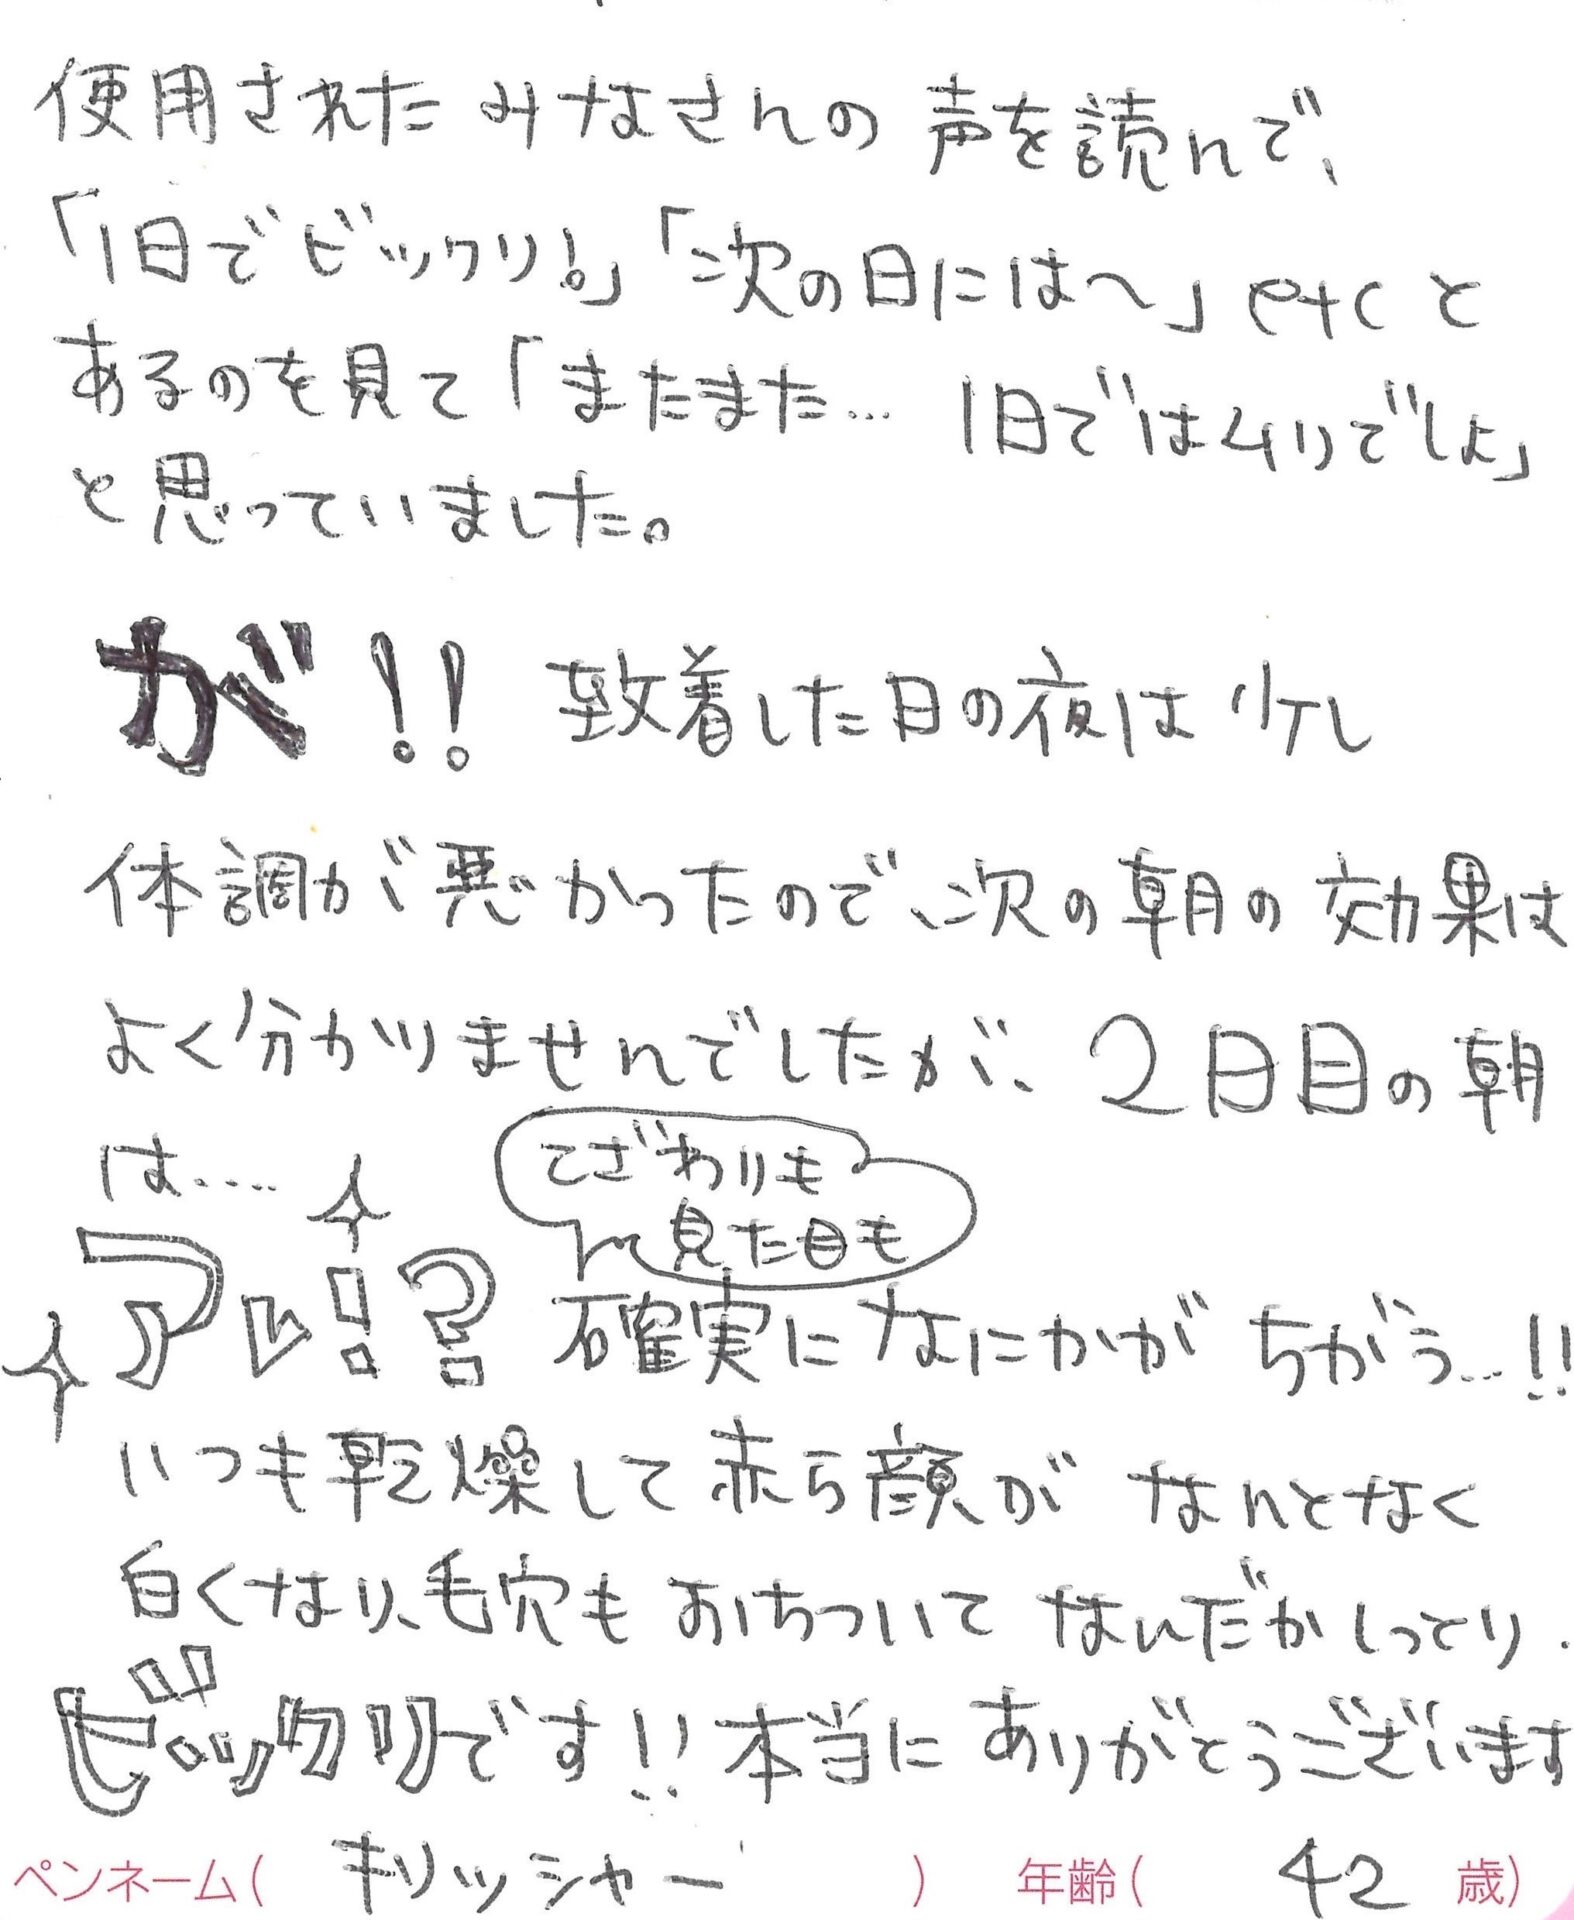 使用されたみなさんの声を読んで、
「1日でビックリ!」「次の日には〜」etcと
あるのを見て「またまた… 1日ではムリでしょ」
と思っていました。
が!! 到着した日の夜は少し
体調が悪かったので、次の朝の効果は
よく分かりませんでしたが、2日目の朝
は‥‥
てざわりも
見た目も
アレ!? 確実になにかがちがう…!!
いつも乾燥して赤ら顔がなんとなく
白くなり、毛穴もおちついてなんだかしっとり.
ビックリです!! 本当にありがとうございます
ペンネーム( キリッシャー ) 年齢( 42 歳)